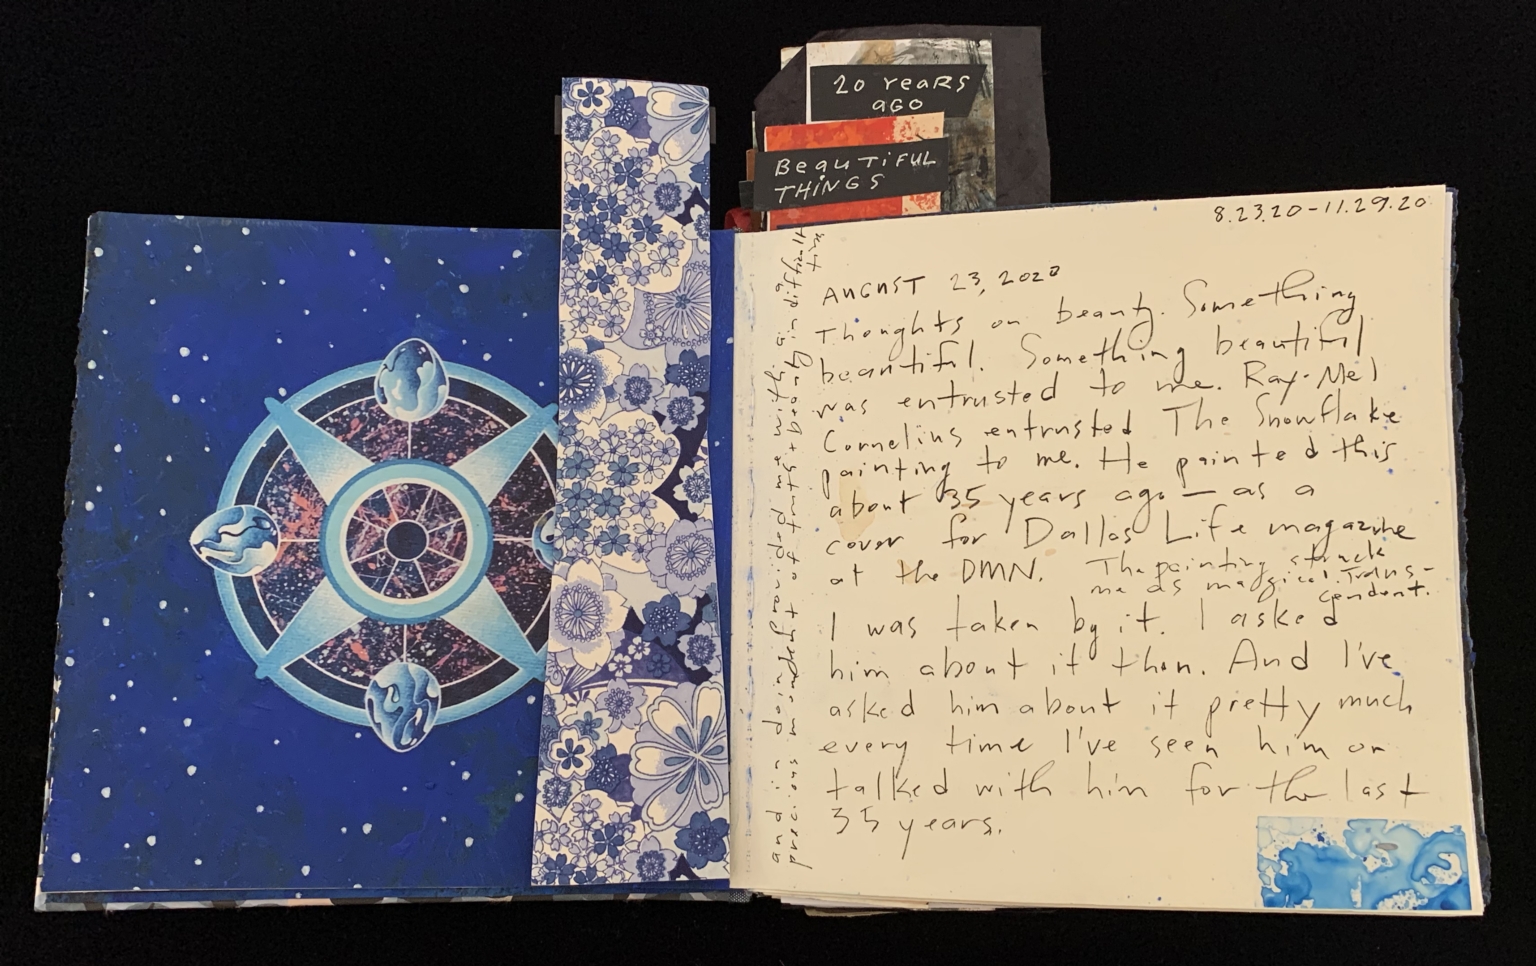 20 YeaRS
AGO
BeAUTiFUL
THiNGS
8.23.20-11.29.20
AUGUST 23, 2020
Thoughts on beauty. Something
beautiful. Something beautiful
was entrusted to me. Ray-Mel
Cornelius entrusted The Snowflake
painting to me. He painted this
about 35 years ago — as a
cover for Dallas Life magazine
at the DMN. The painting struck
me as magical. Trans-
cendent.
I was taken by it. I asked
him about it then. And I've
asked him about it pretty much
every time I've seen him or
talked with him for the last
35 years.
and in doing provided me with a
precious moment of trust + beauty in difficult
time